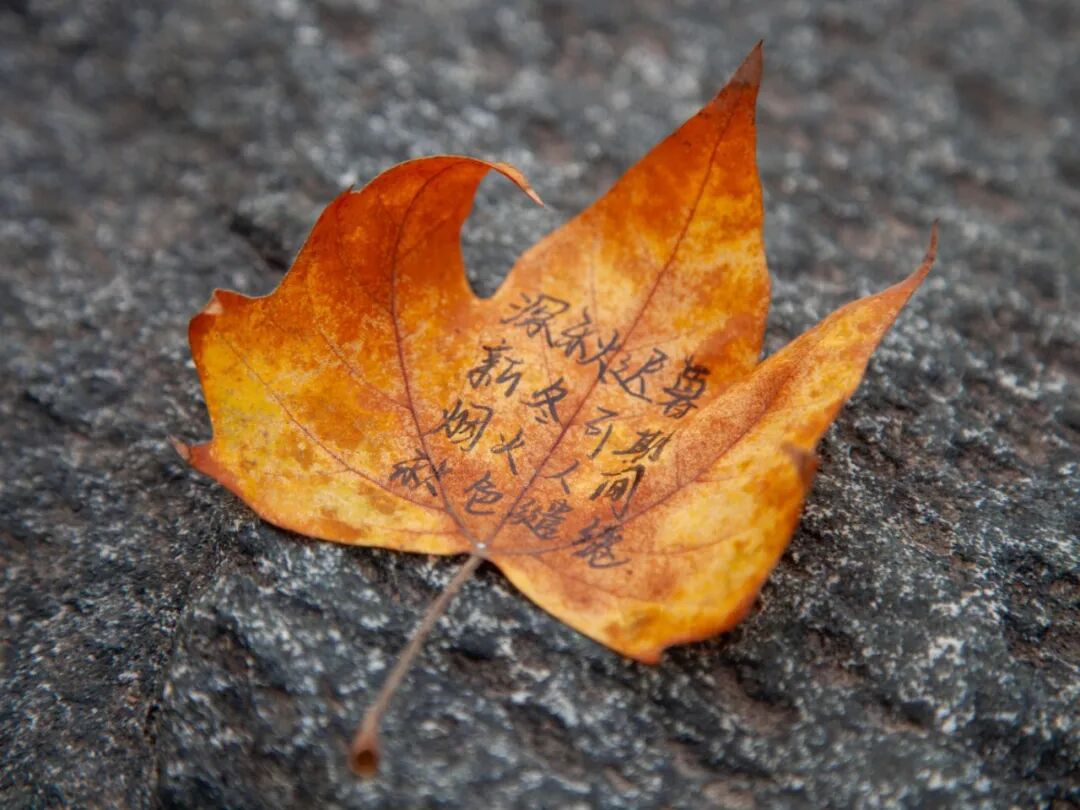 深秋迟暮
新冬可期
烟火人间
秋色缱绻